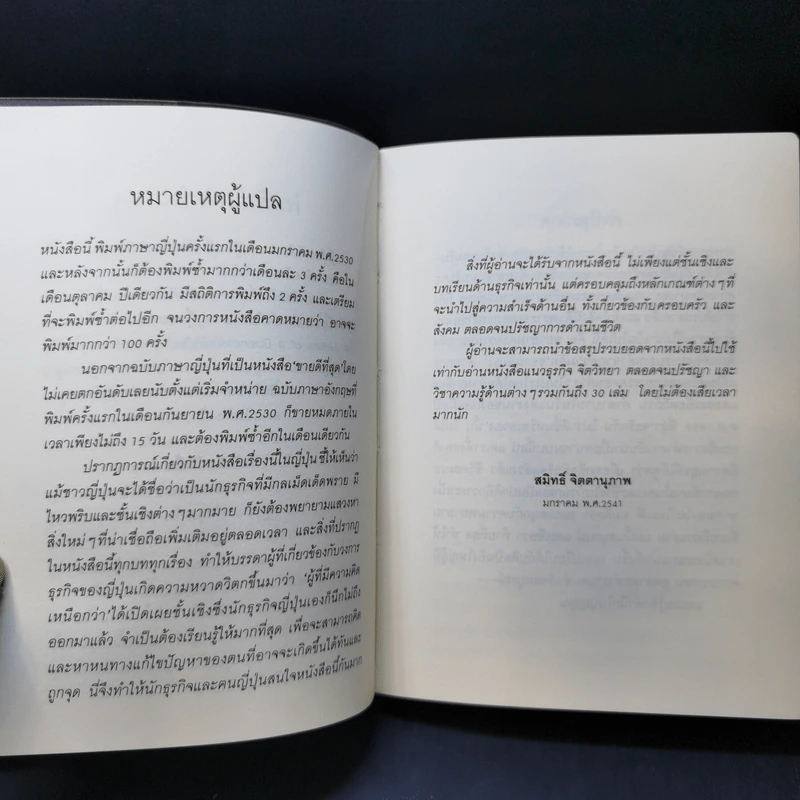 หมายเหตุผู้แปล
หนังสือนี้ พิมพ์ภาษาญี่ปุ่นครั้งแรกในเดือนมกราคม พ.ศ.2530
และหลังจากนั้นก็ต้องพิมพ์ซ้ำมากกว่าเดือนละ 3 ครั้ง คือใน
เดือนตุลาคม ปีเดียวกัน มีสถิติการพิมพ์ถึง 2 ครั้ง และเตรียม
ที่จะพิมพ์ซ้ำต่อไปอีก จนวงการหนังสือคาดหมายว่า อาจจะ
พิมพ์มากกว่า 100 ครั้ง
นอกจากฉบับภาษาญี่ปุ่นที่เป็นหนังสือ‘ขายดีที่สุด’โดย
ไม่เคยตกอันดับเลยนับตั้งแต่เริ่มจำหน่าย ฉบับภาษาอังกฤษที่
พิมพ์ครั้งแรกในเดือนกันยายน พ.ศ.2530 ก็ขายหมดภายใน
เวลาเพียงไม่ถึง 15 วัน และต้องพิมพ์ซ้ำอีกในเดือนเดียวกัน
ปรากฏการณ์เกี่ยวกับหนังสือเรื่องนี้ในญี่ปุ่น ชี้ให้เห็นว่า
แม้ชาวญี่ปุ่นจะได้ชื่อว่าเป็นนักธุรกิจที่มีกลเม็ดเด็ดพราย มี
ไหวพริบและชั้นเชิงต่างๆมากมาย ก็ยังต้องพยายามแสวงหา
สิ่งใหม่ๆที่น่าเชื่อถือเพิ่มเติมอยู่ตลอดเวลา และสิ่งที่ปรากฏ
ในหนังสือนี้ทุกบททุกเรื่อง ทำให้บรรดาผู้ที่เกี่ยวข้องกับวงการ
ธุรกิจของญี่ปุ่นเกิดความหวาดวิตกขึ้นมาว่า ‘ผู้ที่มีความคิด
เหนือกว่า’ได้เปิดเผยชั้นเชิงซึ่งนักธุรกิจญี่ปุ่นเองก็นึกไม่ถึง
ออกมาแล้ว จำเป็นต้องเรียนรู้ให้มากที่สุด เพื่อจะสามารถคิด
และหาหนทางแก้ไขปัญหาของตนที่อาจจะเกิดขึ้นได้ทันและ
ถูกจุด นี่จึงทำให้นักธุรกิจและคนญี่ปุ่นสนใจหนังสือนี้กันมาก
สิ่งที่ผู้อ่านจะได้รับจากหนังสือนี้ ไม่เพียงแต่ชั้นเชิงและ
บทเรียนด้านธุรกิจเท่านั้น แต่ครอบคลุมถึงหลักเกณฑ์ต่างๆที่
จะนำไปสู่ความสำเร็จด้านอื่น ทั้งเกี่ยวข้องกับครอบครัว และ
สังคม ตลอดจนปรัชญาการดำเนินชีวิต
ผู้อ่านจะสามารถนำข้อสรุปรวบยอดจากหนังสือนี้ไปใช้
เท่ากับอ่านหนังสือแนวธุรกิจ จิตวิทยา ตลอดจนปรัชญา และ
วิชาความรู้ด้านต่างๆรวมกันถึง 30 เล่ม โดยไม่ต้องเสียเวลา
มากนัก
สมิทธิ์ จิตตานุภาพ
มกราคม พ.ศ.2541